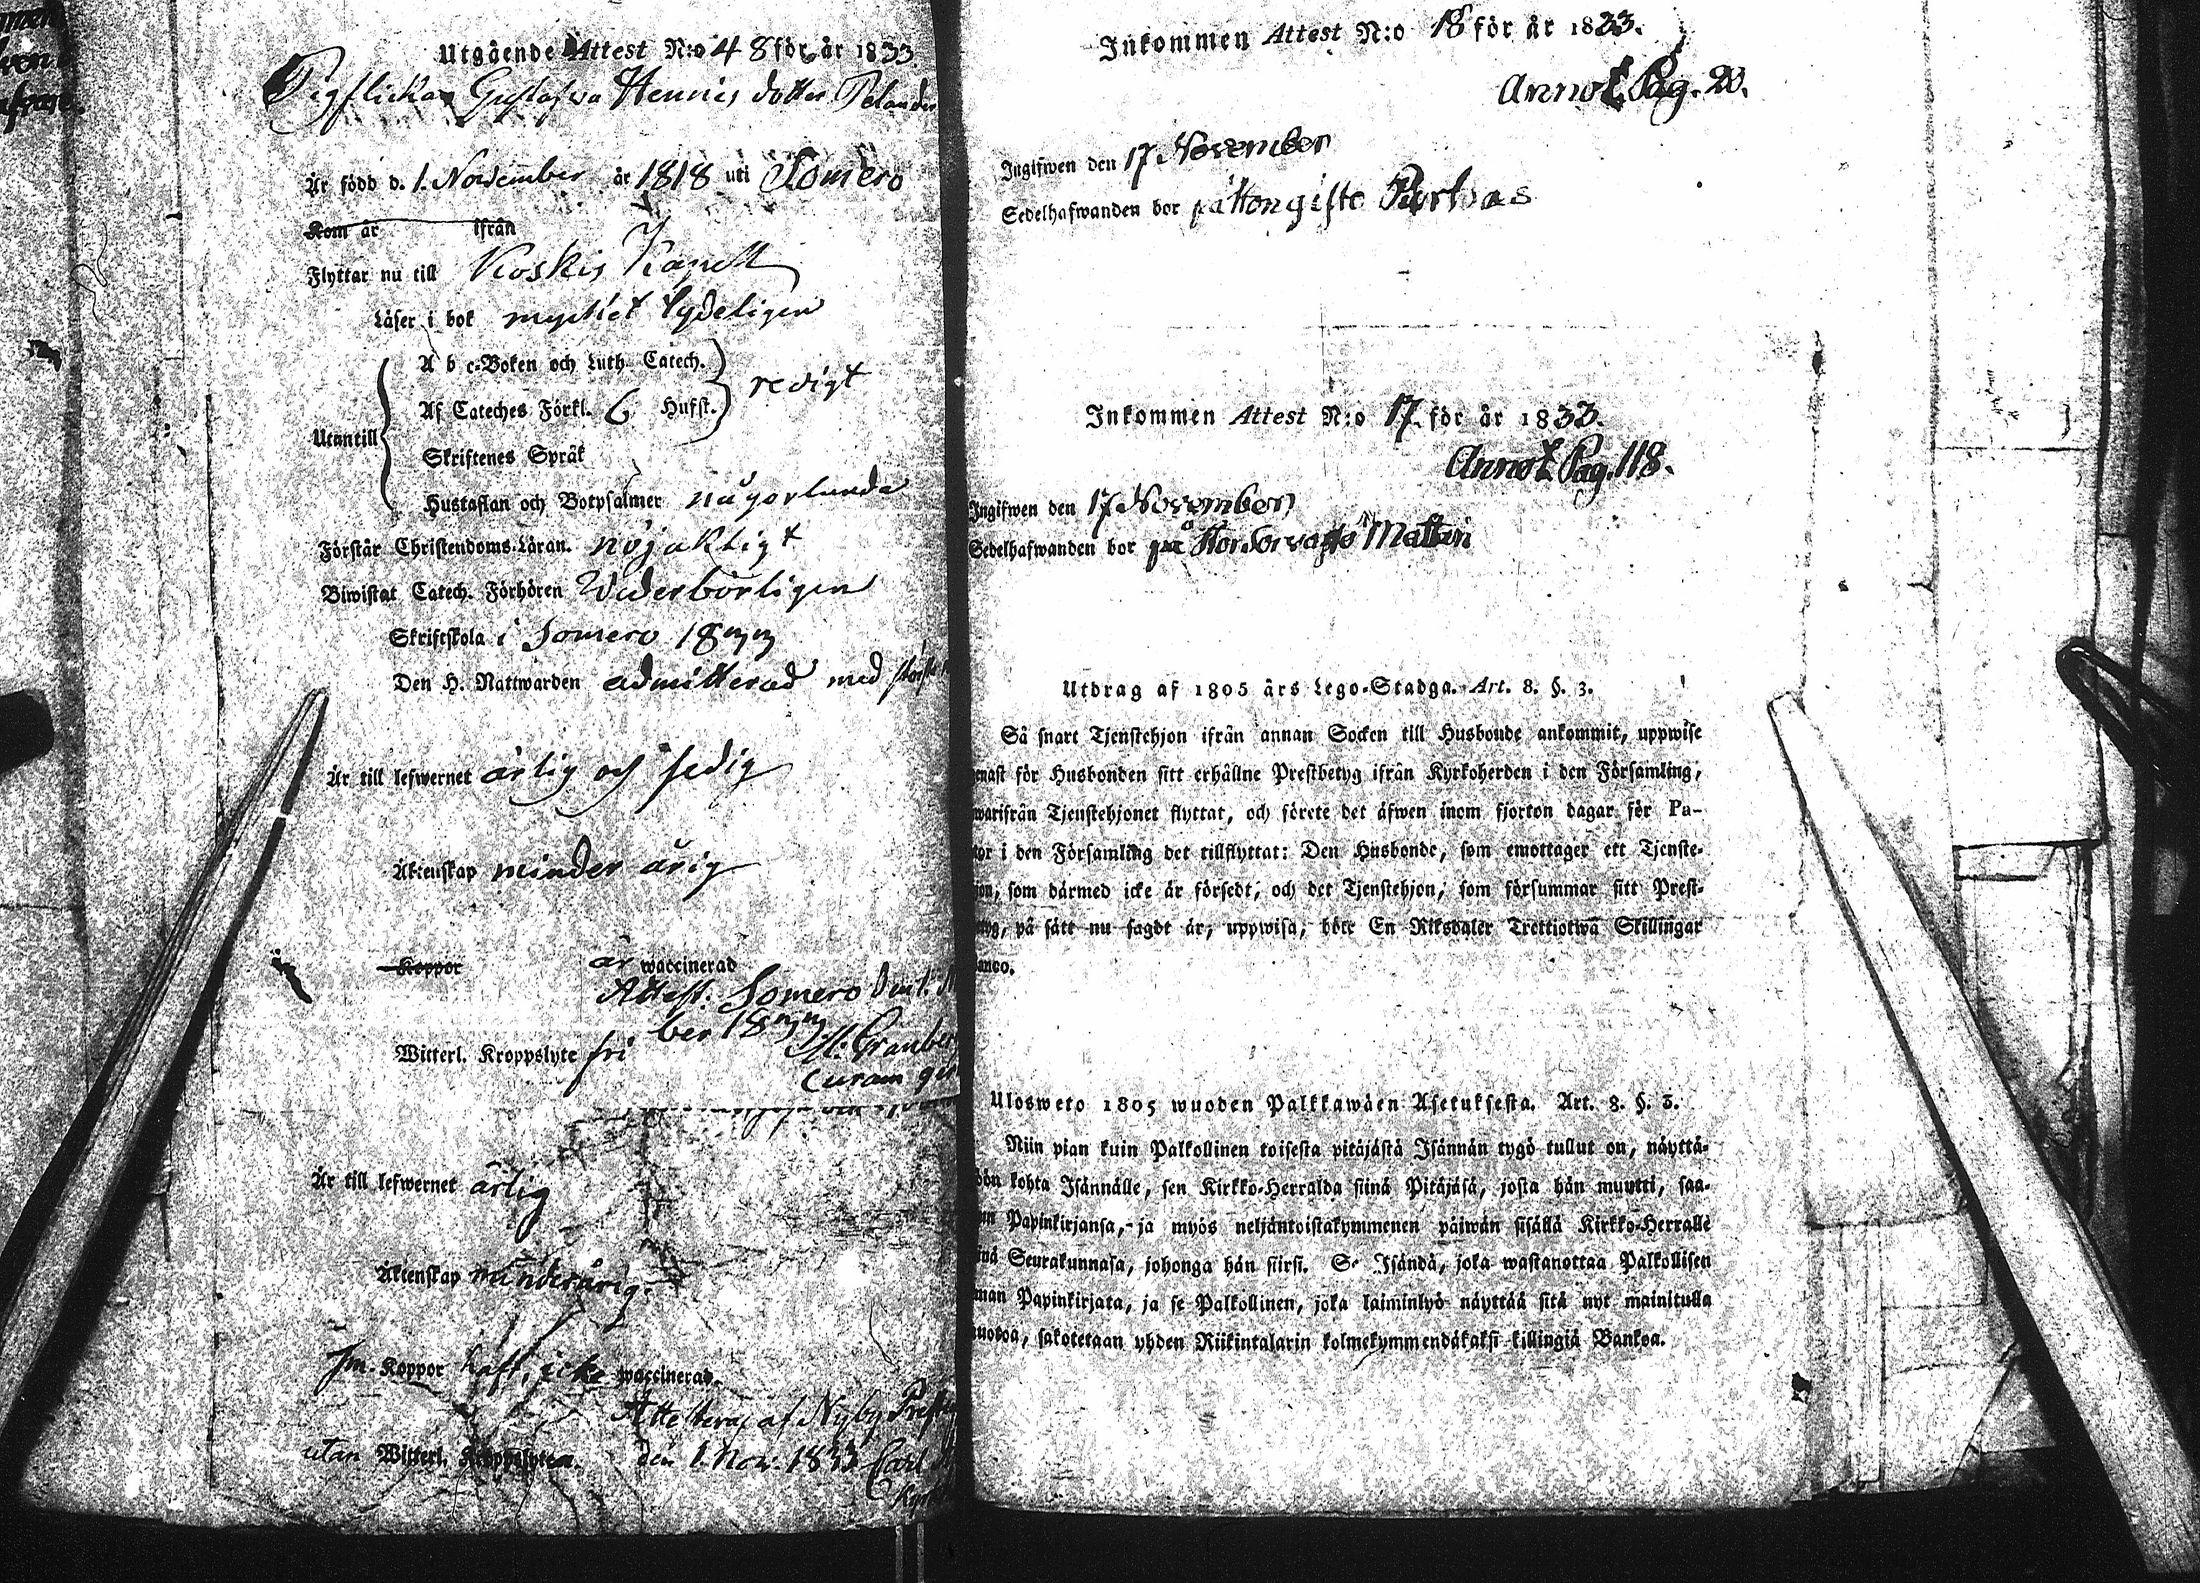 Utgående Attest N:o 48 för år 1833
Pigflickan Gustafwa Henrics dotter Pelander
Är född d. 1. November år 1818 uti Somero
Kom år ifrån
Flyttar nu till Koskis Kapell
Läser i bok mycket tydeligen
A b c-Boken och Luth. Catech.
redigt
Af Cateches Förkl. 6 Hufst.
Utantill
Skriftenes Språk
Hustaflan och Botpsalmer någorlunda
Förstår Christendoms-Läran. nöjaktigt
Biwistat Catech. Förhören Wederbörligen
Skriftskola i Somero 1833
Den H. Nattwarden admitterad med
Är till lefwernet ärlig och sedig
Äktenskap minderårig
Koppor är waccinerad
Attest. Somero den 1.
ber 1833
Witterl. Kroppslyte fri
curam
Är till lefwernet ärlig
Äktenskap minderårig.
Koppor haft, icke waccinerad.
Attesteras af Nyby
utan Witterl. Kroppslyten. den 1 Nov. 1833 Carl
Inkommen Attest N:o 18 för år 1833.
Annot. Pag. 20.
Ingifwen den 17 November
Sedelhafwanden bor på
Inkommen Attest N:o 17. för år 1833.
Annot. Pag. 118.
Ingifwen den 17 November
Sedelhafwanden bor på Mattari
Utdrag af 1805 års Lego-Stadga. Art. 8. §. 3.
Så snart Tjenstehjon ifrån annan Socken till Husbonde ankommit, uppwise
enast för Husbonden sitt erhållne Prestbetyg ifrån Kyrkoherden i den Församling,
warifrån Tjenstehjonet flyttat, och förete det äfwen inom fjorton dagar för Pa-
tor i den Församling det tillflyttat: Den Husbonde, som emottager ett Tjenste-
jon, som därmed icke är försedt, och det Tjenstehjon, som försummar sitt Prest-
tyg, på sätt nu sagdt är, uppwisa, böte En Riksdaler Trettiotwå Skillingar
anco.
Ulosweto 1805 wuoden Palkkawäen Asetuksesta. Art. 8. §. 3.
Niin pian kuin Palkollinen toisesta pitäjästä Isännän tygö tullut on, näyttä-
kön kohta Isännälle, sen Kirkko-Herralda siinä Pitäjäsä, josta hän muutti, saa-
un Papinkirjansa, ja myös neljäntoistakymmenen päiwän sisällä Kirkko-Herralle
inä Seurakunnasa, johonga hän siirsi. Se Isändä, joka wastanottaa Palkollisen
man Papinkirjata, ja se Palkollinen, joka laiminlyö näyttää sitä nyt mainitulla
uotoa, sakotetaan yhden Riikintalarin kolmekymmendäkaksi killingiä Bankoa.